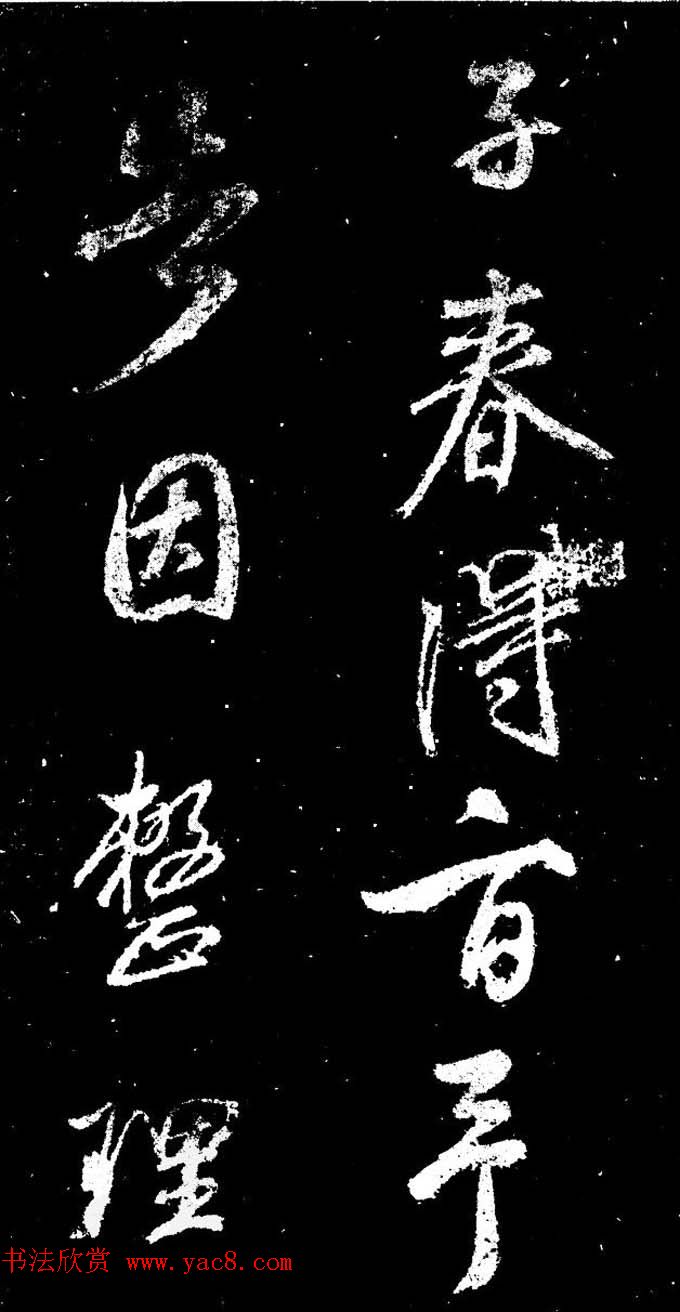 子春得百平
步因整理
书法欣赏 www.yac8.com